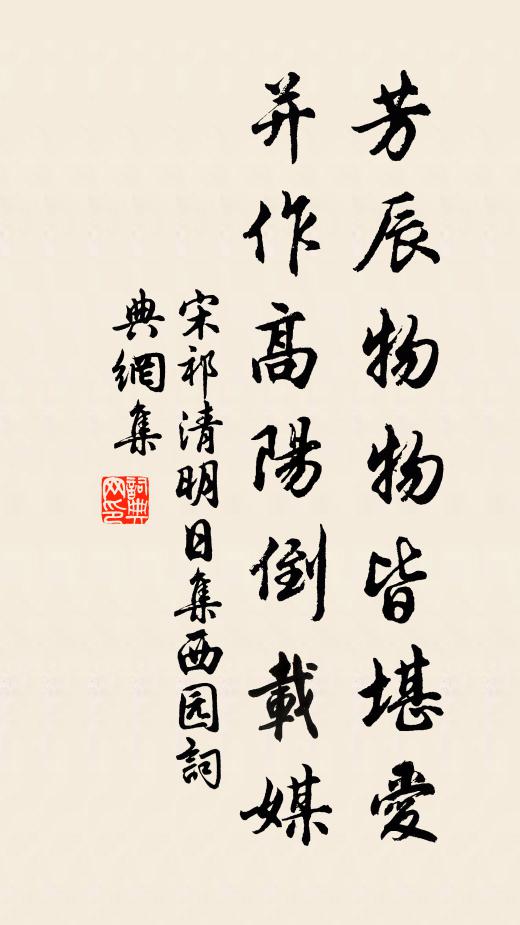 芳辰物物皆堪愛
并作高陽倒載媒
宋祁清明日集西园詞
典網集
詞典网印